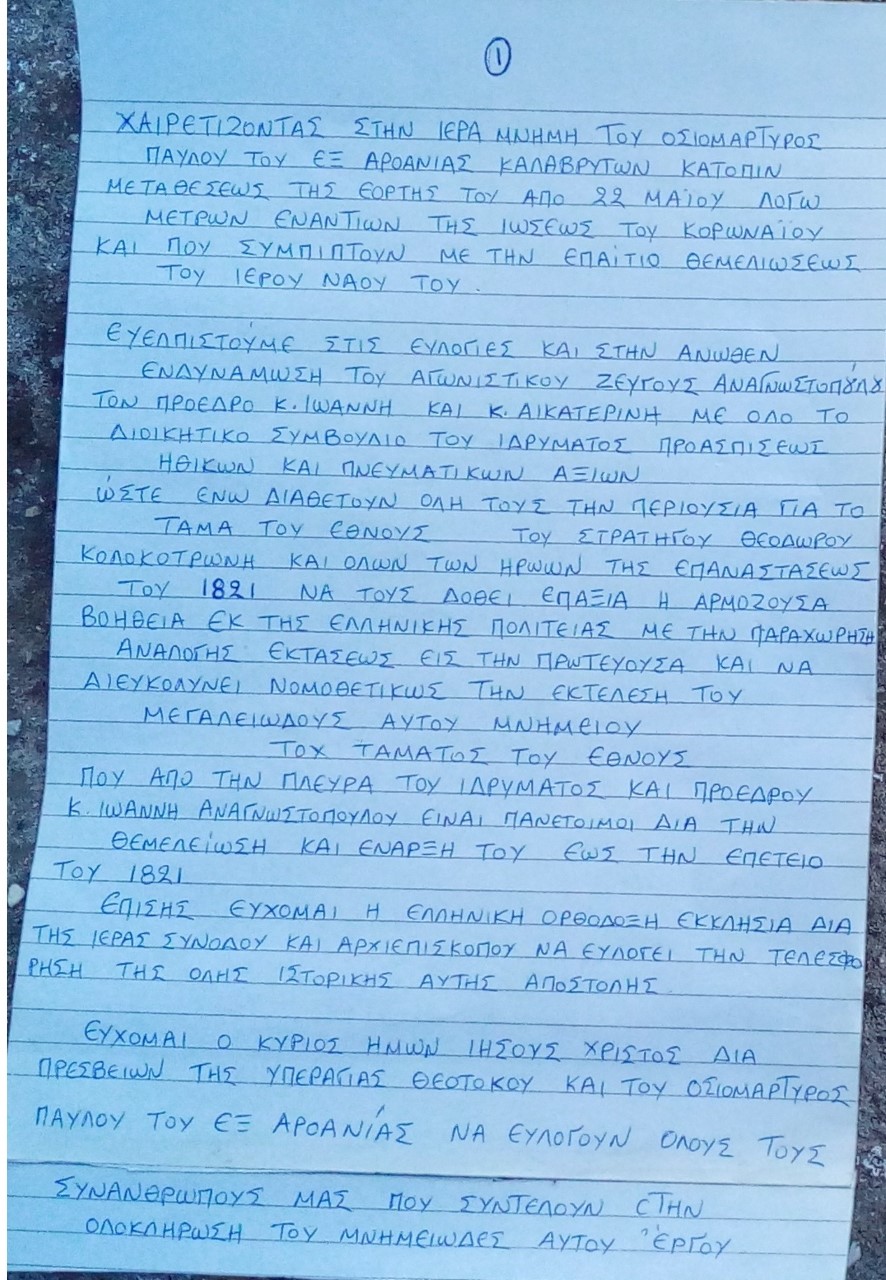 1
ΧΑΙΡΕΤΙΖΟΝΤΑΣ ΣΤΗΝ ΙΕΡΑ ΜΝΗΜΗ ΤΟΥ ΟΣΙΟΜΑΡΤΥΡΟΣ
ΠΑΥΛΟΥ ΤΟΥ ΕΞ ΑΡΟΑΝΙΑΣ ΚΑΛΑΒΡΥΤΩΝ ΚΑΤΟΠΙΝ
ΜΕΤΑΘΕΣΕΩΣ ΤΗΣ ΕΟΡΤΗΣ ΤΟΥ ΑΠΟ 22 ΜΑΪΟΥ ΛΟΓΩ
ΜΕΤΡΩΝ ΕΝΑΝΤΙΩΝ ΤΗΣ ΙΩΣΕΩΣ ΤΟΥ ΚΟΡΩΝΑΪΟΥ
ΚΑΙ ΠΟΥ ΣΥΜΠΙΠΤΟΥΝ ΜΕ ΤΗΝ ΕΠΑΙΤΙΟ ΘΕΜΕΛΙΩΣΕΩΣ
ΤΟΥ ΙΕΡΟΥ ΝΑΟΥ ΤΟΥ.
ΕΥΕΛΠΙΣΤΟΥΜΕ ΣΤΙΣ ΕΥΛΟΓΙΕΣ ΚΑΙ ΣΤΗΝ ΑΝΩΘΕΝ
ΕΝΔΥΝΑΜΩΣΗ ΤΟΥ ΑΓΩΝΙΣΤΙΚΟΥ ΖΕΥΓΟΥΣ ΑΝΑΓΝΩΣΤΟΠΟΥΛΟΥ
ΤΟΝ ΠΡΟΕΔΡΟ Κ. ΙΩΑΝΝΗ ΚΑΙ Κ. ΑΙΚΑΤΕΡΙΝΗ ΜΕ ΟΛΟ ΤΟ
ΔΙΟΙΚΗΤΙΚΟ ΣΥΜΒΟΥΛΙΟ ΤΟΥ ΙΔΡΥΜΑΤΟΣ ΠΡΟΑΣΠΙΣΕΩΣ
ΗΘΙΚΩΝ ΚΑΙ ΠΝΕΥΜΑΤΙΚΩΝ ΑΞΙΩΝ
ΏΣΤΕ ΕΝΩ ΔΙΑΘΕΤΟΥΝ ΟΛΗ ΤΟΥΣ ΤΗΝ ΠΕΡΙΟΥΣΙΑ ΓΙΑ ΤΟ
ΤΑΜΑ ΤΟΥ ΕΘΝΟΥΣ ΤΟΥ ΣΤΡΑΤΗΓΟΥ ΘΕΟΔΩΡΟΥ
ΚΟΛΟΚΟΤΡΩΝΗ ΚΑΙ ΟΛΩΝ ΤΩΝ ΗΡΩΩΝ ΤΗΣ ΕΠΑΝΑΣΤΑΣΕΩΣ
ΤΟΥ 1821 ΝΑ ΤΟΥΣ ΔΟΘΕΙ ΕΠΑΞΙΑ Η ΑΡΜΟΖΟΥΣΑ
ΒΟΗΘΕΙΑ ΕΚ ΤΗΣ ΕΛΛΗΝΙΚΗΣ ΠΟΛΙΤΕΙΑΣ ΜΕ ΤΗΝ ΠΑΡΑΧΩΡΗΣΗ
ΑΝΑΛΟΓΗΣ ΕΚΤΑΣΕΩΣ ΕΙΣ ΤΗΝ ΠΡΩΤΕΥΟΥΣΑ ΚΑΙ ΝΑ
ΔΙΕΥΚΟΛΥΝΕΙ ΝΟΜΟΘΕΤΙΚΩΣ ΤΗΝ ΕΚΤΕΛΕΣΗ ΤΟΥ
ΜΕΓΑΛΕΙΩΔΟΥΣ ΑΥΤΟΥ ΜΝΗΜΕΙΟΥ
ΤΟΥ ΤΑΜΑΤΟΣ ΤΟΥ ΕΘΝΟΥΣ
ΠΟΥ ΑΠΟ ΤΗΝ ΠΛΕΥΡΑ ΤΟΥ ΙΔΡΥΜΑΤΟΣ ΚΑΙ ΠΡΟΕΔΡΟΥ
Κ. ΙΩΑΝΝΗ ΑΝΑΓΝΩΣΤΟΠΟΥΛΟΥ ΕΙΝΑΙ ΠΑΝΕΤΟΙΜΟΙ ΔΙΑ ΤΗΝ
ΘΕΜΕΛΕΙΩΣΗ ΚΑΙ ΕΝΑΡΞΗ ΤΟΥ ΕΩΣ ΤΗΝ ΕΠΕΤΕΙΟ
ΤΟΥ 1821
ΕΠΙΣΗΣ ΕΥΧΟΜΑΙ Η ΕΛΛΗΝΙΚΗ ΟΡΘΟΔΟΞΗ ΕΚΚΛΗΣΙΑ ΔΙΑ
ΤΗΣ ΙΕΡΑΣ ΣΥΝΟΔΟΥ ΚΑΙ ΑΡΧΙΕΠΙΣΚΟΠΟΥ ΝΑ ΕΥΛΟΓΕΙ ΤΗΝ ΤΕΛΕΣΦΟ
ΡΗΣΗ ΤΗΣ ΟΛΗΣ ΙΣΤΟΡΙΚΗΣ ΑΥΤΗΣ ΑΠΟΣΤΟΛΗΣ
ΕΥΧΟΜΑΙ Ο ΚΥΡΙΟΣ ΗΜΩΝ ΙΗΣΟΥΣ ΧΡΙΣΤΟΣ ΔΙΑ
ΠΡΕΣΒΕΙΩΝ ΤΗΣ ΥΠΕΡΑΓΙΑΣ ΘΕΟΤΟΚΟΥ ΚΑΙ ΤΟΥ ΟΣΙΟΜΑΡΤΥΡΟΣ
ΠΑΥΛΟΥ ΤΟΥ ΕΞ ΑΡΟΑΝΊΑΣ ΝΑ ΕΥΛΟΓΟΥΝ ΟΛΟΥΣ ΤΟΥΣ
ΣΥΝΑΝΘΡΩΠΟΥΣ ΜΑΣ ΠΟΥ ΣΥΝΤΕΛΟΥΝ ΣΤΗΝ
ΟΛΟΚΛΗΡΩΣΗ ΤΟΥ ΜΝΗΜΕΙΩΔΕΣ ΑΥΤΟΥ ΈΡΓΟΥ